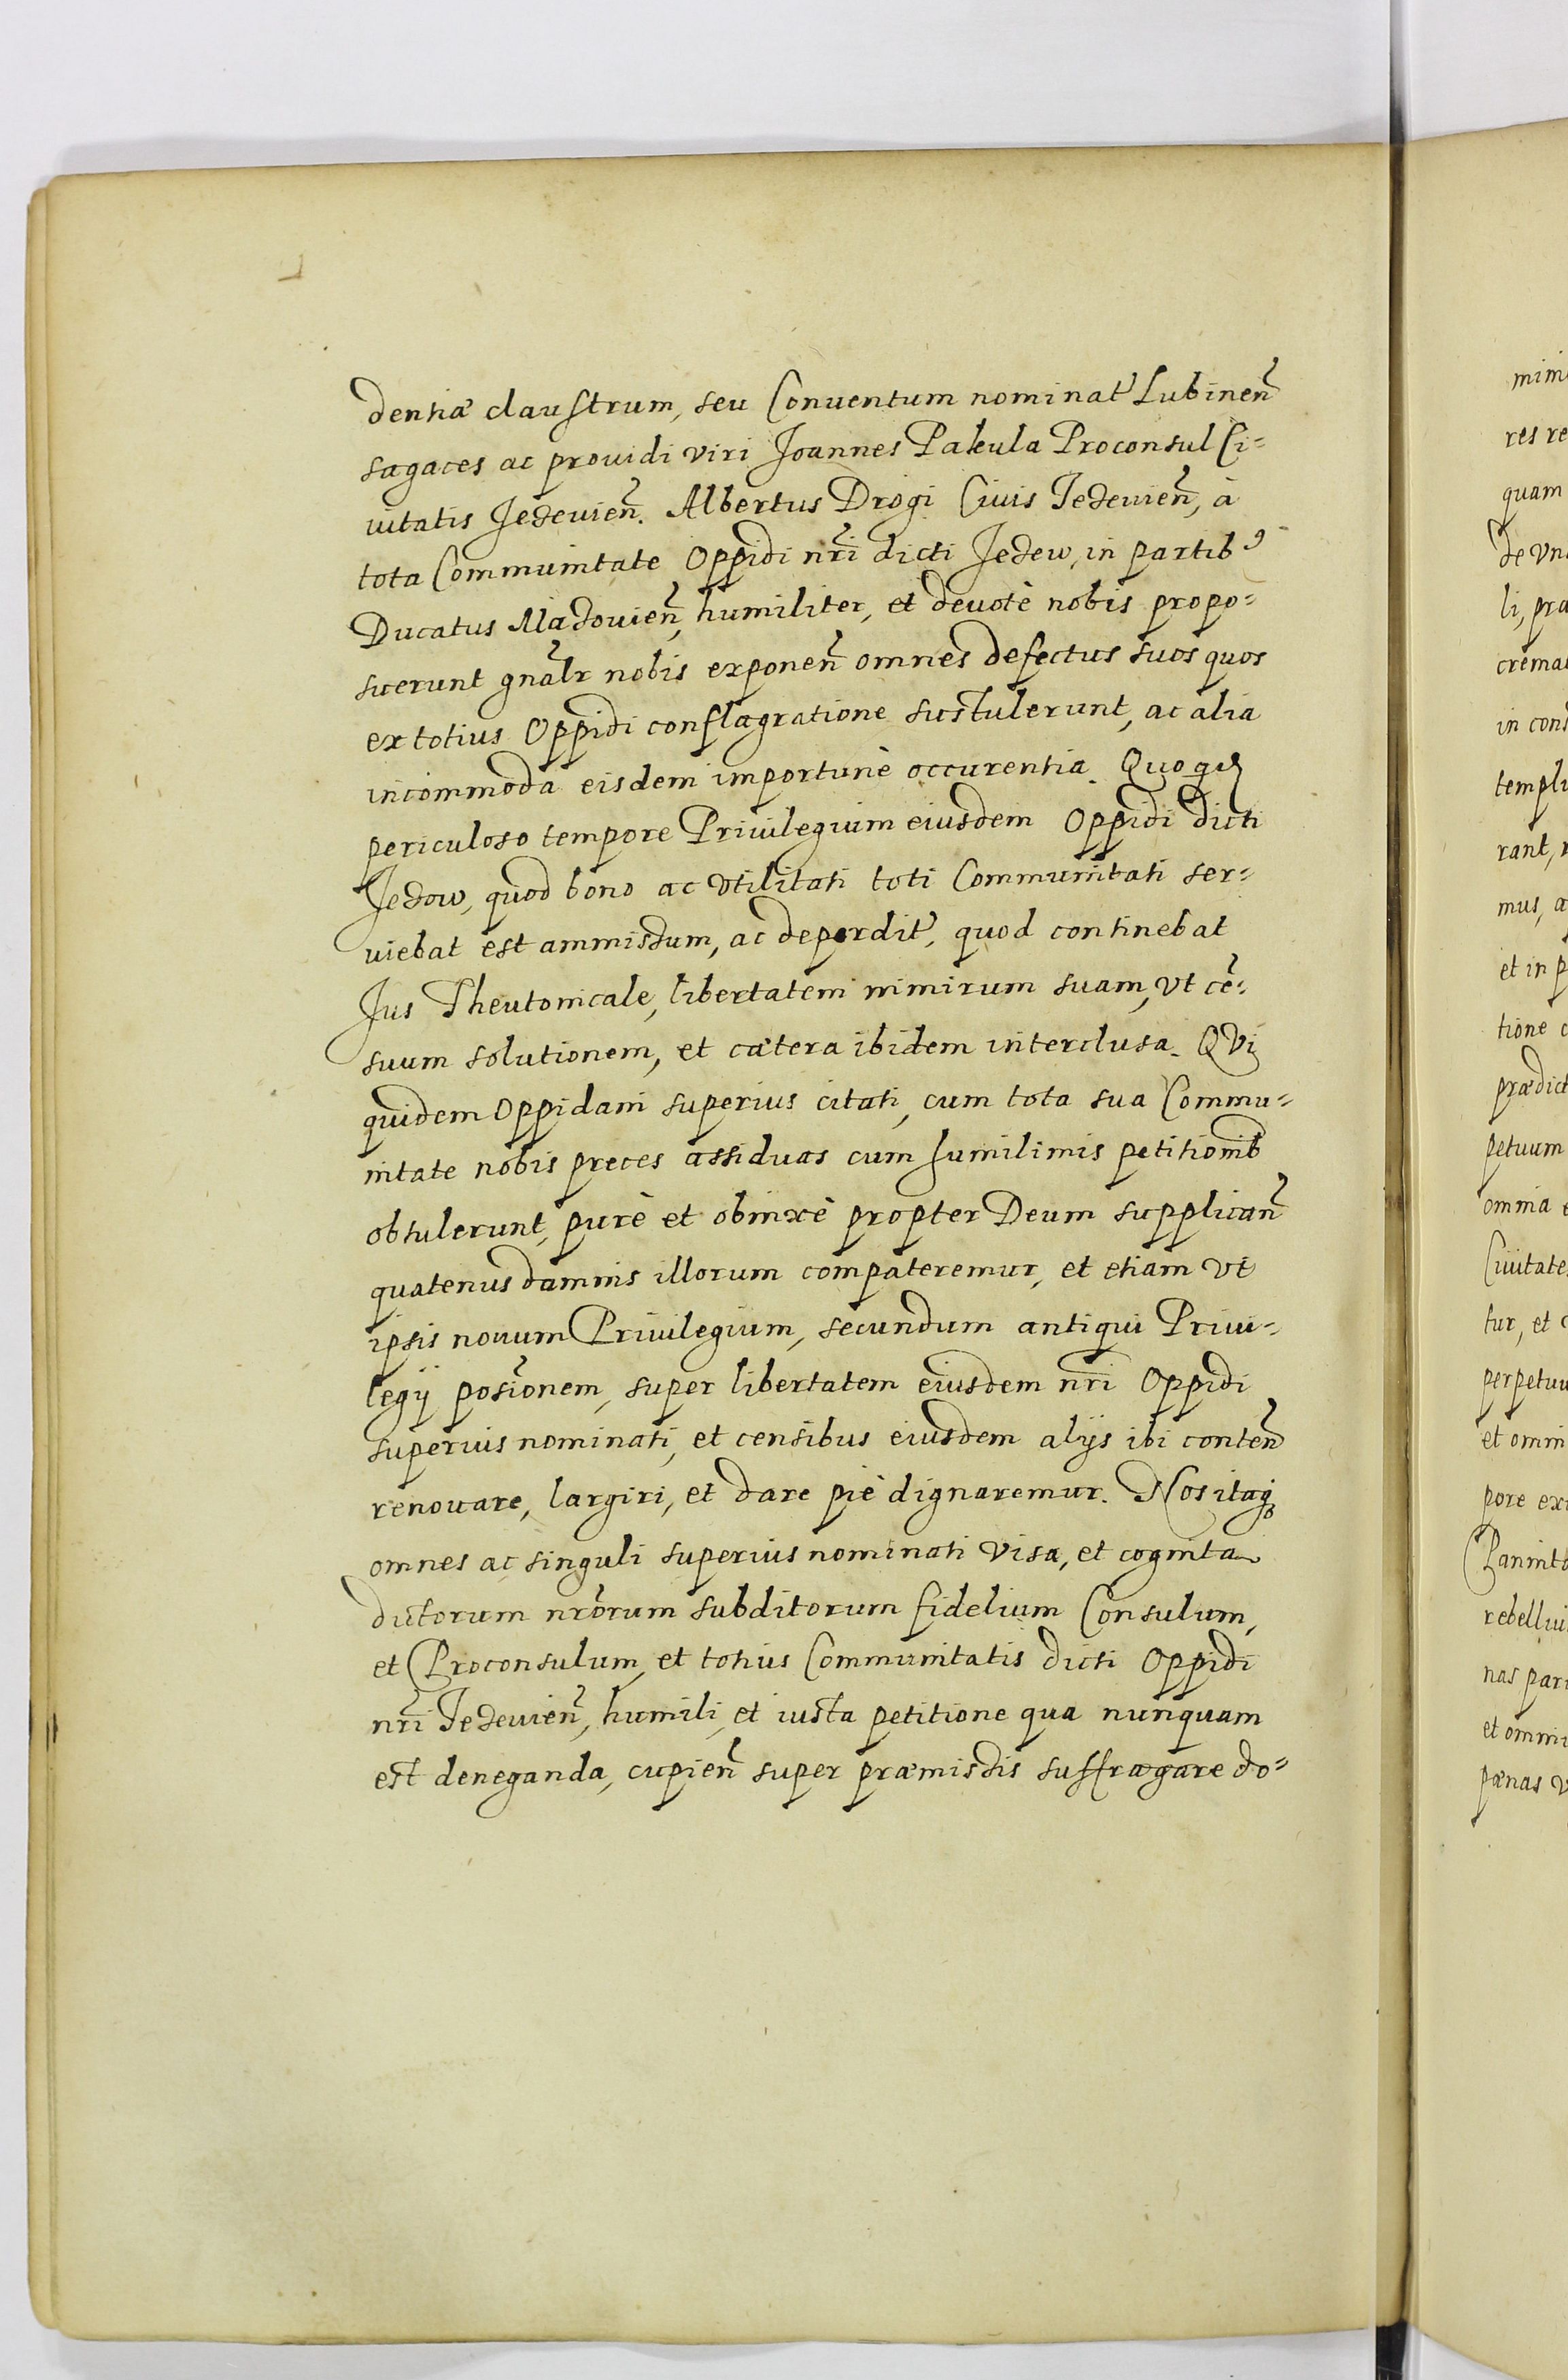 dentiæ claustrum, seu Conuentum nominat Lubinen̄
sagaces ac prouidi viri Joannes Pakula Proconsul Ci=
uitatis Jezeuien̄. Albertus Drogi Ciuis Jezeuien̄, à
tota Communitate Oppidi nr̄i dicti Jezew, in partib9
Ducatus Mazouien̄, humiliter, et deuotè nobis propo=
suerunt gn̄alr nobis exponen̄ omnes defectus suos quos
ex totius Oppidi conflagratione sustulerunt, ac alia
incommoda eisdem importunè occurentia. Quo qdē
periculoso tempore Priuilegium eiusdem Oppidi dicti
Jezow, quod bono ac vtilitati toti Communitati ser=
uiebat est ammissum, ac deperdit, quod continebat
Jus Theutonicale, libertatem nimirum suam, vt cē=
suum solutionem, et cætera ibidem interclusa. QVi
quidem Oppidani superius citati, cum tota sua Commu=
nitate nobis preces assiduas cum humilimis petitionib
obtulerunt, purè et obnixè propter Deum supplican̄
quatenus damnis illorum compateremur, et etiam vt
ipsis nouum Priuilegium, secundum antiqui Priui=
legij posiōnem, super libertatem eiusdem nr̄i Oppidi
superius nominati, et censibus eiusdem alijs ibi conten̄
renouare, largiri, et dare piè dignaremur. Nos itaq3
omnes ac singuli superius nominati visa, et cognita
dictorum nr̄orum subditorum fidelium Consulum,
et Proconsulum, et totius Communitatis dicti Oppidi
nr̄i Jezeuien̄, humili, et iusta petitione qua nunquam
est deneganda, cupien̄ super præmissis suffragare do=
mim
res re
quam
de vn
li, pra
crema
in cons
templi
rant,
mus, a
et in p
tione c
prædict
petuum
omnia e
Ciuitate
tur, et c
perpetuu
et omni
pore exi
Pannito
rebelliu
nas pari
et omni
pænas v